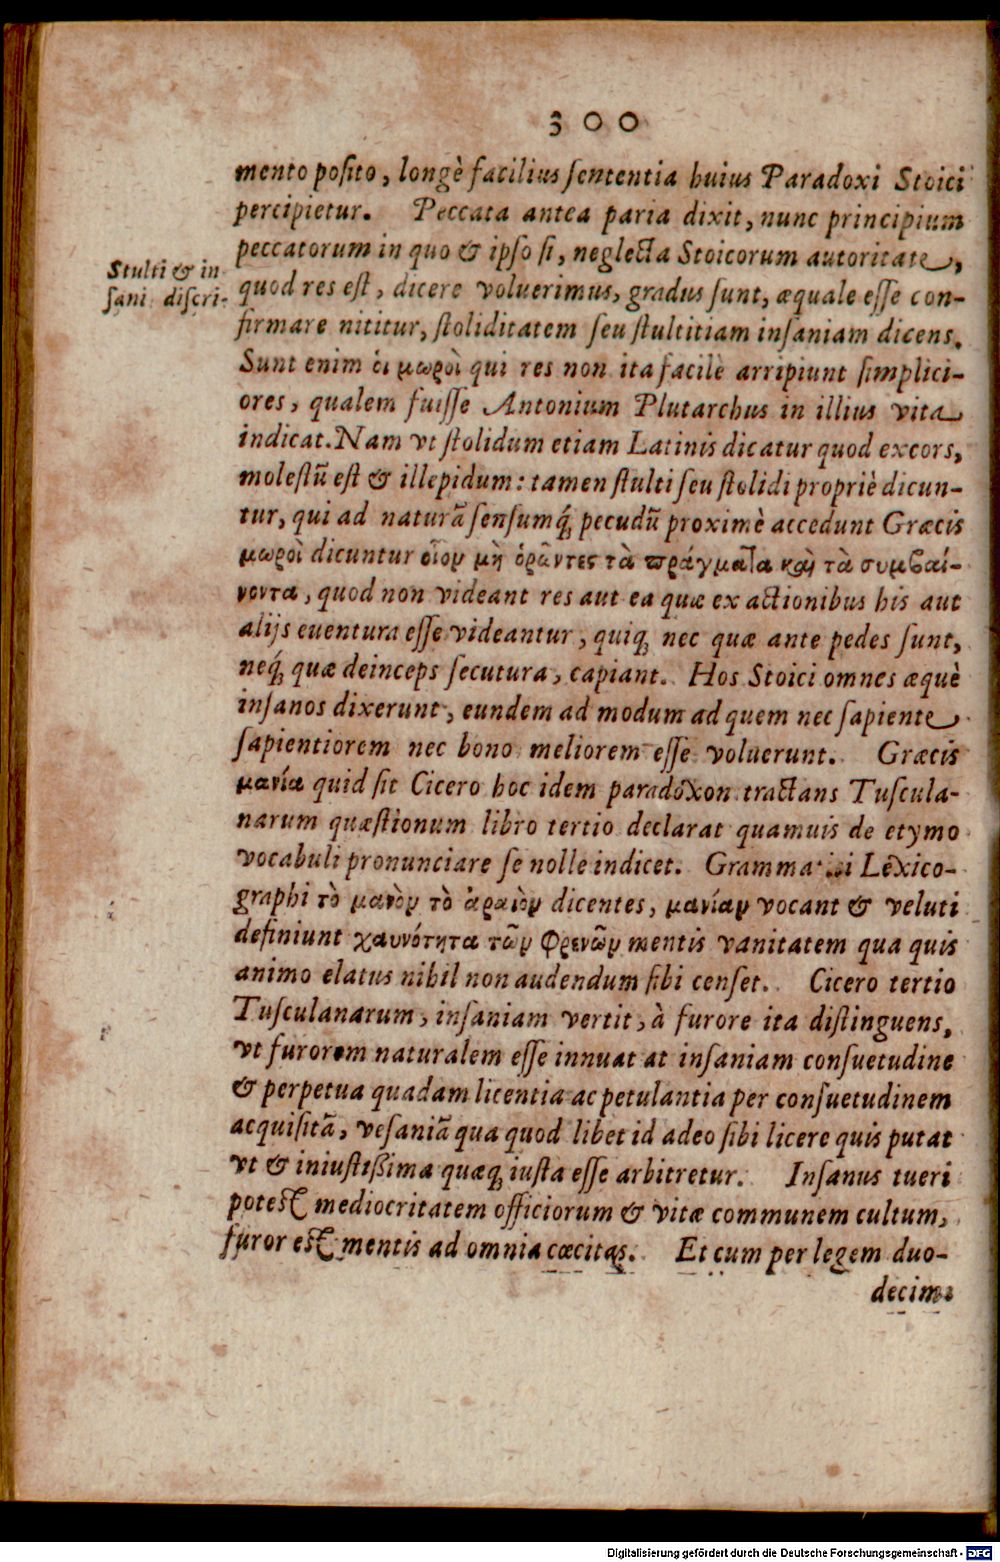 300
mento posito, longè facilius sententia huius Paradoxi Stoici
percipietur. Peccata antea paria dixit, nunc principium
peccatorum in quo & ipso si, neglecta Stoicorum autoritate,
Stulti & in
sani discri-
quod res est, dicere voluerimus, gradus sunt, æquale esse con-
firmare nititur, stoliditatem seu stultitiam insaniam dicens.
Sunt enim ὁι μωροὶ qui res non ita facilè arripiunt simplici-
ores, qualem fuisse Antonium Plutarchus in illius vita
indicat. Nam vt stolidum etiam Latinis dicatur quod excors,
molestũ est & illepidum: tamen stulti seu stolidi propriè dicun-
tur, qui ad naturã sensumq́; pecudũ proximè accedunt Græcis
μωροὶ dicuntur οἷον μὴ ὁρῶντες τὰ πράγματα καὶ τὰ συμβαί-
νοντα, quod non videant res aut ea quæ ex actionibus his aut
alijs euentura esse videantur, quiq; nec quæ ante pedes sunt,
neq́; quæ deinceps secutura, capiant. Hos Stoici omnes æquè
insanos dixerunt, eundem ad modum ad quem nec sapiente
sapientiorem nec bono meliorem esse voluerunt. Græcis
μανία quid sit Cicero hoc idem paradoxon tractans Tuscula-
narum quæstionum libro tertio declarat quamuis de etymo
vocabuli pronunciare se nolle indicet. Lexico-
graphi τὸ μανὸν τὸ ἀραιὸν dicentes, μανίαν vocant & veluti
definiunt χαυνότητα τῶν φρενῶν mentis vanitatem qua quis
animo elatus nihil non audendum sibi censet. Cicero tertio
Tusculanarum, insaniam vertit, à furore ita distinguens,
vt furorem naturalem esse innuat at insaniam consuetudine
& perpetua quadam licentia ac petulantia per consuetudinem
acquisitã, vesaniã qua quod libet id adeo sibi licere quis putat
vt & iniustißima quæq; iusta esse arbitretur. Insanus tueri
potest mediocritatem officiorum & vitæ communem cultum,
furor est mentis ad omnia cæcitas. Et cum per legem duo-
decim
Digitalisierung gefördert durch die Deutsche Forschungsgemeinschaft - DFG